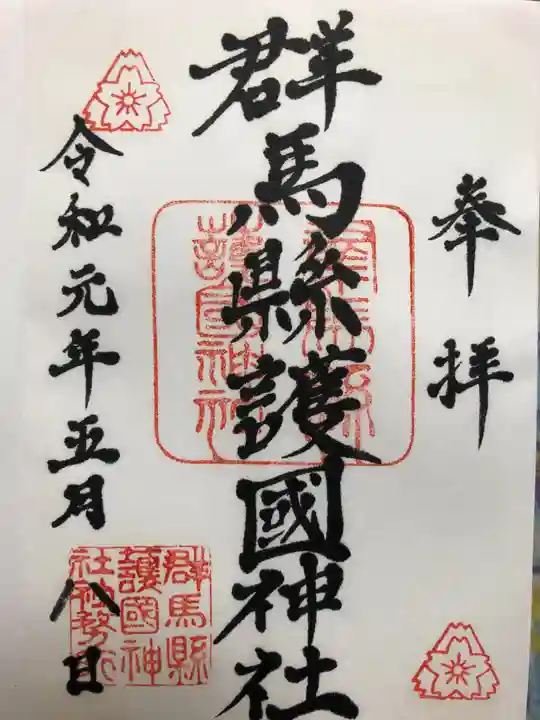 奉拝
群馬縣護國神社
群馬縣
護國神社
令和元年五月八日
群馬縣
護國神
社社務所